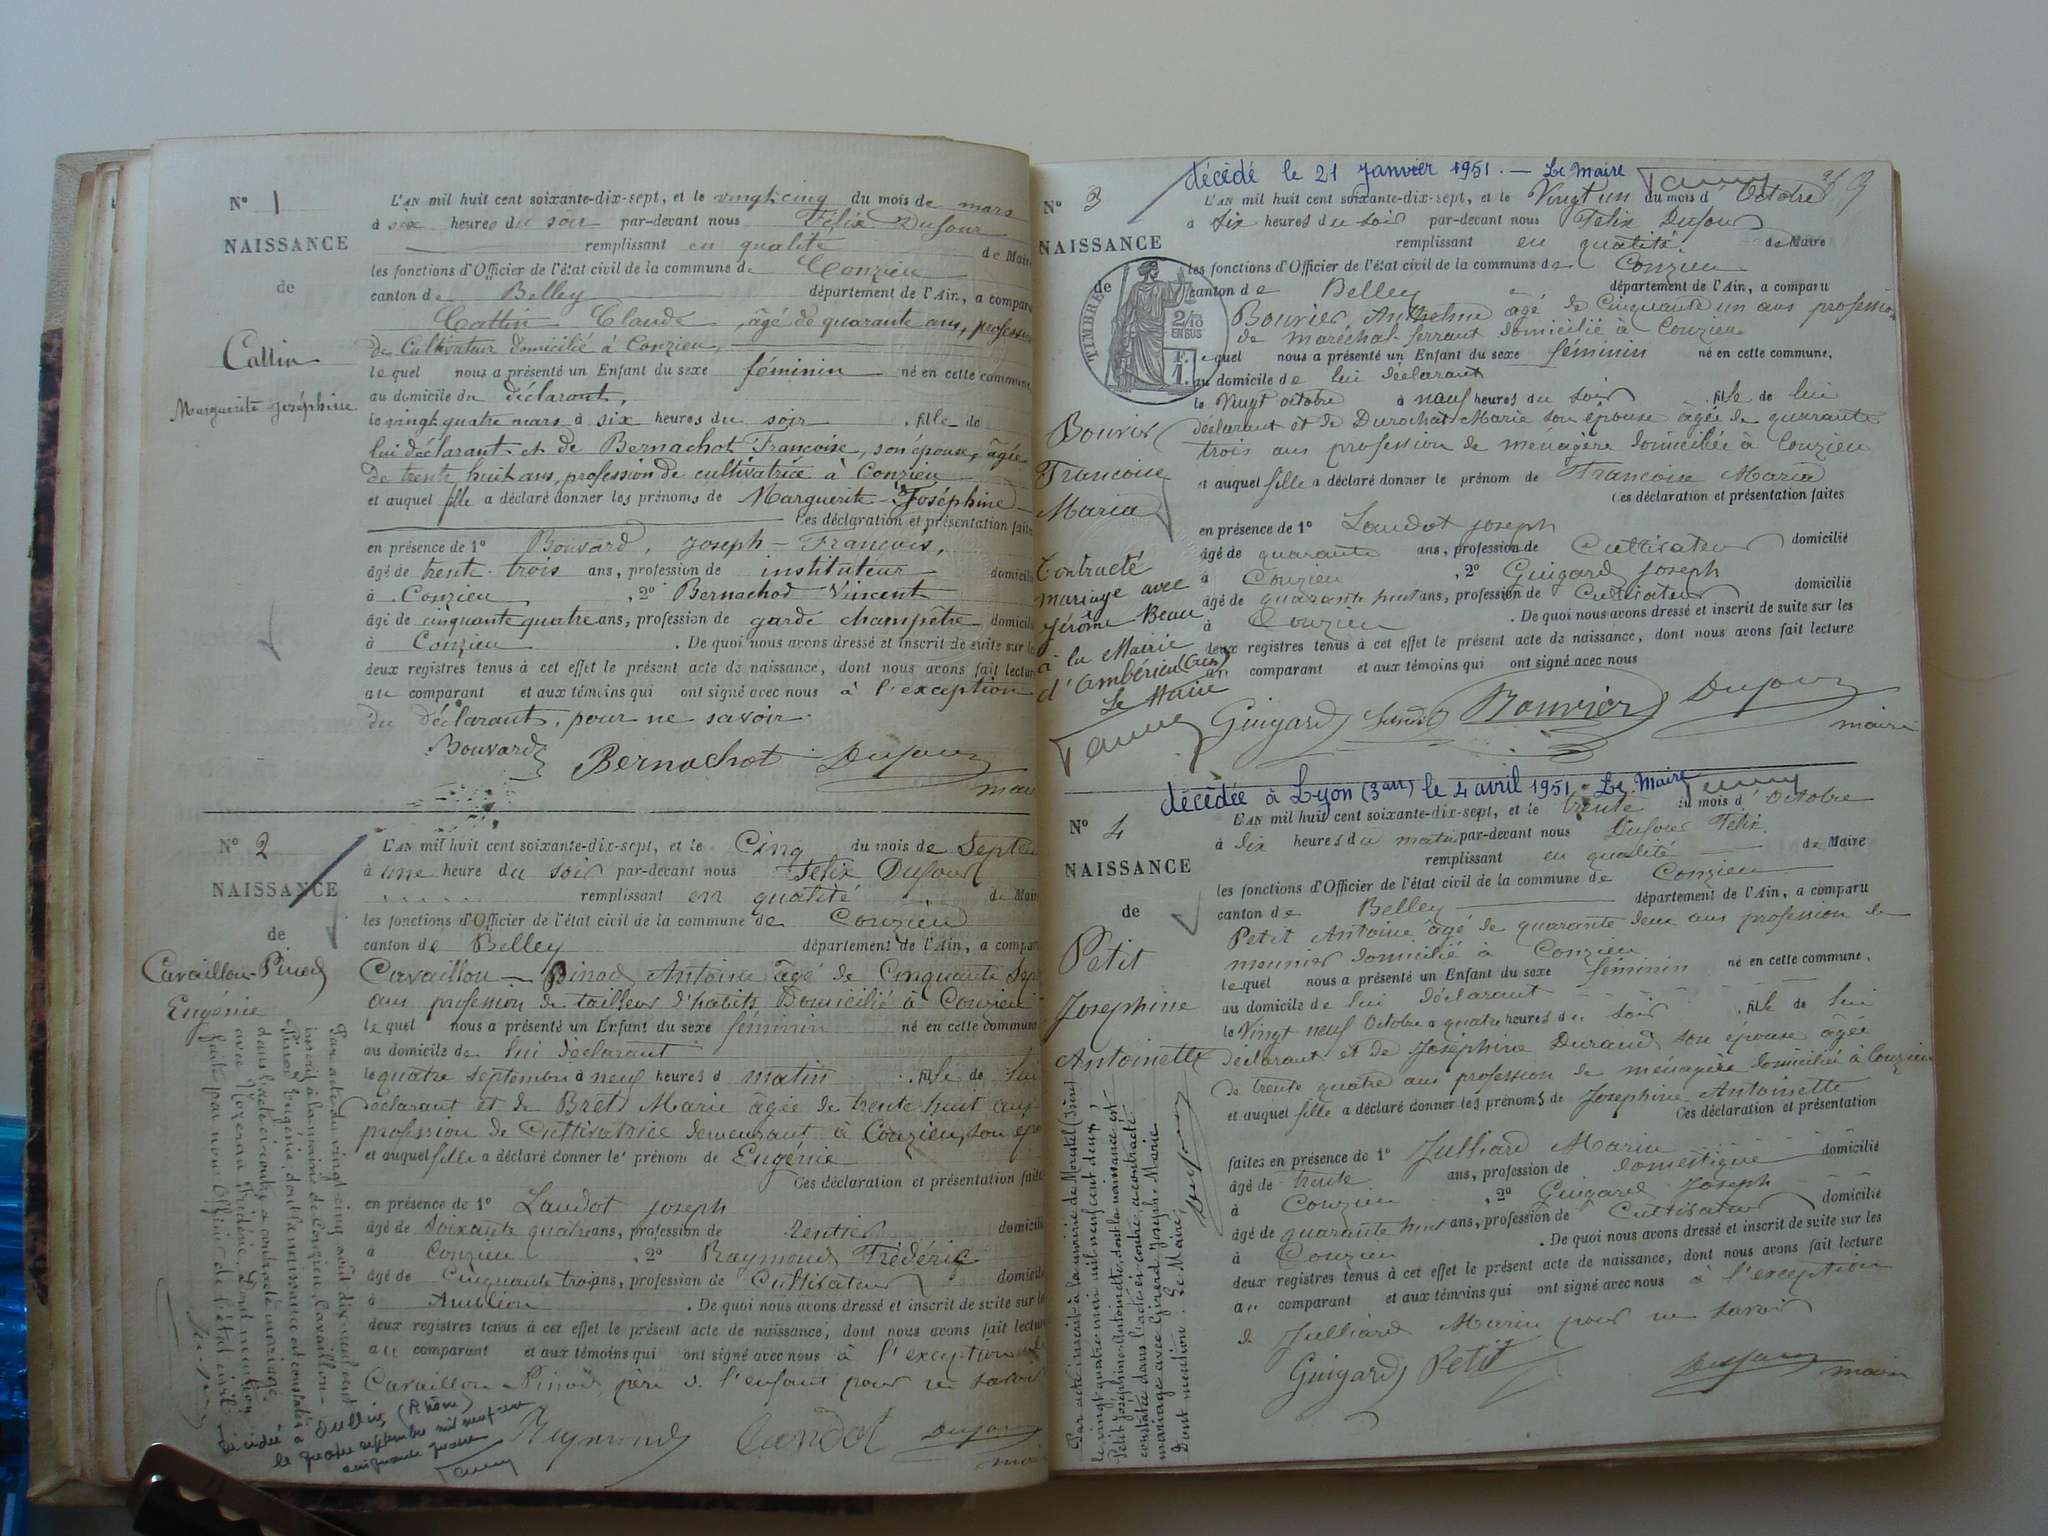 N° 1
NAISSANCE
de
Cattin
Marguerite Joséphine
L'AN mil huit cent soixante-dix-sept, et le vingt cinq du mois de mars
à six heures du soir par-devant nous Félix Dufour
remplissant en qualité de Maire
les fonctions d'Officier de l'état civil de la commune de Conzieu
canton de Belley département de l'Ain, a comparu
Cattin Claude, âgé de quarante ans, profession
de Cultivateur domicilié à Conzieu,
lequel nous a présenté un Enfant du sexe féminin né en cette commune,
au domicile du déclarant,
le vingt quatre mars à six heures du soir, fille de
lui déclarant et de Bernachot Françoise, son épouse, âgée
de trente huit ans, profession de cultivatrice à Conzieu
et auquel fille a déclaré donner les prénoms de Marguerite-Joséphine
Ces déclaration et présentation faites
en présence de 1° Bouvard, Joseph-François,
âgé de trente-trois ans, profession de instituteur domicilié
à Conzieu, 2° Bernachod Vincent
âgé de cinquante quatre ans, profession de garde champêtre, domicilié
à Conzieu. De quoi nous avons dressé et inscrit de suite sur les
deux registres tenus à cet effet le présent acte de naissance, dont nous avons fait lecture
au comparant et aux témoins qui ont signé avec nous à l'exception
du déclarant, pour ne savoir
Bouvard Bernachot Dufour
maire
N° 2
NAISSANCE
de
Cavaillon-Pinod
Eugénie
L'AN mil huit cent soixante-dix-sept, et le Cinq du mois de Septem
à une heure du soir par-devant nous Félix Dufour
remplissant en qualité de Maire
les fonctions d'Officier de l'état civil de la commune de Conzieu
canton de Belley département de l'Ain, a comparu
Cavaillon-Pinod Antoine âgé de Cinquante Sept
ans profession de tailleur d'habits Domicilié à Conzieu
lequel nous a présenté un Enfant du sexe féminin né en cette commune
au domicile de lui déclarant
le quatre septembre à neuf heures d matin, fille de lui
déclarant et de Bret Marie âgée de trente huit ans
profession de Cultivatrice demeurant à Conzieu, son ép
et auquel fille a déclaré donner le prénom de Eugénie
Ces déclaration et présentation faites
en présence de 1° Landot joseph
âgé de soixante quatre ans, profession de rentier domicilié
à Conzieu, 2° Raymond Frédéric
âgé de Cinquante trois ans, profession de Cultivateur domicilié
à Ambléon. De quoi nous avons dressé et inscrit de suite sur les
deux registres tenus à cet effet le présent acte de naissance, dont nous avons fait lecture
au comparant et aux témoins qui ont signé avec nous à l'exception
Cavaillon-Pinod père de l'enfant pour ne savoir
Reymond Landot Dufour
maire
Par acte du vingt cinq août dix-neuf cent
inscrit à la mairie de Conzieu, Cavaillon-
Pinod Eugénie, dont la naissance est constatée
dans l'acte ci-contre, a contracté mariage
avec Frédéric. Dont mention
faite par nous Officier de l'état civil
Décédée à Oullins (Rhône)
le quatre septembre mil neuf cent
cinquante quatre
décédé le 21 Janvier 1951. - Le Maire
N° 3
NAISSANCE
de
TIMBRE
2/10
EN SUS
1 F.
Bouvier
Françoise
Maria
Contracté
mariage avec
Jérôme Beau
à la Mairie
d'Ambérieu (Ain)
Le Maire
L'AN mil huit cent soixante-dix-sept, et le Vingt un du mois d Octobre
à six heures du soir par-devant nous Félix Dufour
remplissant en qualité de Maire
les fonctions d'Officier de l'état civil de la commune de Conzieu
canton de Belley département de l'Ain, a comparu
Bouvier Anthelme âgé de Cinquante un ans profession
de maréchal-ferrant domicilié à Conzieu
lequel nous a présenté un Enfant du sexe féminin né en cette commune,
au domicile de lui déclarant
le Vingt octobre à neuf heures du soir, fille de lui
déclarant et de Durochat Marie son épouse âgée de quarante
trois ans profession de ménagère domiciliée à Conzieu
et auquel fille a déclaré donner le prénom de Françoise Maria
Ces déclaration et présentation faites
en présence de 1° Landot joseph
âgé de quarante ans, profession de Cultivateur domicilié
à Conzieu, 2° Guigard Joseph
âgé de quarante huit ans, profession de Cultivateur domicilié
à Conzieu. De quoi nous avons dressé et inscrit de suite sur les
deux registres tenus à cet effet le présent acte de naissance, dont nous avons fait lecture
au comparant et aux témoins qui ont signé avec nous
Guigard Landot Bouvier Dufour
maire
décédée à Lyon (3arr) le 4 avril 1951. Le Maire
N° 4
NAISSANCE
de
Petit
Joséphine
Antoinette
L'AN mil huit cent soixante-dix-sept, et le trente du mois d'Octobre
à six heures du matin par-devant nous Dufour Félix
remplissant en qualité de Maire
les fonctions d'Officier de l'état civil de la commune de Conzieu
canton de Belley département de l'Ain, a comparu
Petit Antoine âgé de quarante deux ans profession de
meunier domicilié à Conzieu
lequel nous a présenté un Enfant du sexe féminin né en cette commune,
au domicile de lui déclarant
le Vingt neuf Octobre à quatre heures du soir, fille de lui
déclarant et de Joséphine Durand son épouse âgée
de trente quatre ans profession de ménagère domicilié à Conzieu
et auquel fille a déclaré donner les prénoms de Joséphine Antoinette
Ces déclaration et présentation
faites en présence de 1° Julliard Marin domicilié
âgé de trente ans, profession de domestique
à Conzieu, 2° Guigard Joseph
âgé de quarante huit ans, profession de Cultivateur domicilié
à Conzieu. De quoi nous avons dressé et inscrit de suite sur les
deux registres tenus à cet effet le présent acte de naissance, dont nous avons fait lecture
au comparant et aux témoins qui ont signé avec nous à l'exception
de Julliard Marin pour ne savoir
Guigard Petit Dufour maire
Par acte inscrit à la mairie de Morestel (Isère)
le vingt quatre mai mil neuf cent deux,
Petit Joséphine Antoinette, dont la naissance est
constatée dans l'acte ci-contre, a contracté
mariage avec Girerd Joseph Marie
Dont mention. Le Maire,
Dufour